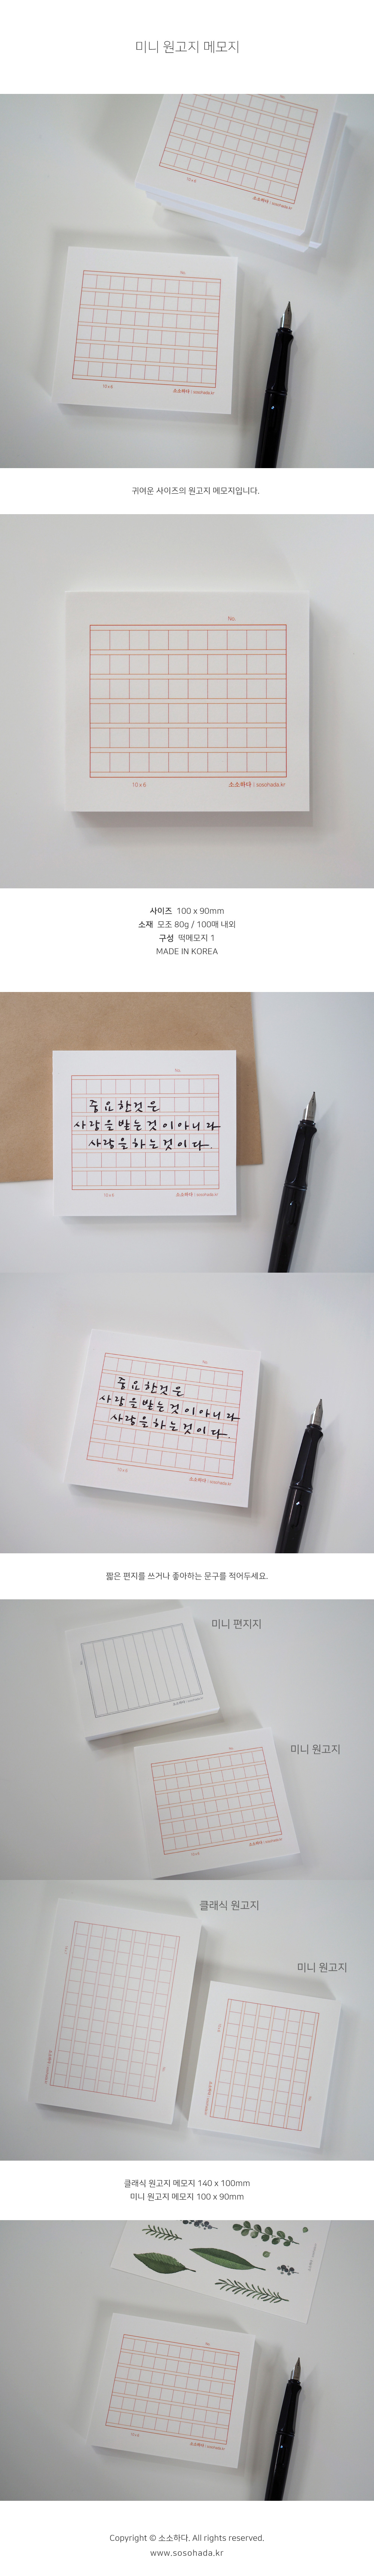 미니 원고지 메모지
No.
10 x 6
소소하다 | sosohada.kr
No.
10 x 6
소소하다 | sosohada.kr
귀여운 사이즈의 원고지 메모지입니다.
No.
10 x 6
소소하다 | sosohada.kr
사이즈 100 x 90mm
소재 모조 80g / 100매 내외
구성 떡메모지 1
MADE IN KOREA
No.
중요한것은
사랑을받는것이아니라
사랑을하는것이다.
10 x 6
소소하다 | sosohada.kr
No.
중요한것은
사랑을받는것이아니라
사랑을하는것이다.
10 x 6
소소하다 | sosohada.kr
짧은 편지를 쓰거나 좋아하는 문구를 적어두세요.
미니 편지지
소소하다 | sosohada.kr
미니 원고지
No.
10 x 6
소소하다 | sosohada.kr
클래식 원고지
미니 원고지
클래식 원고지 메모지 140 x 100mm
미니 원고지 메모지 100 x 90mm
No.
10 x 6
소소하다 | sosohada.kr
Copyright © 소소하다. All rights reserved.
www.sosohada.kr